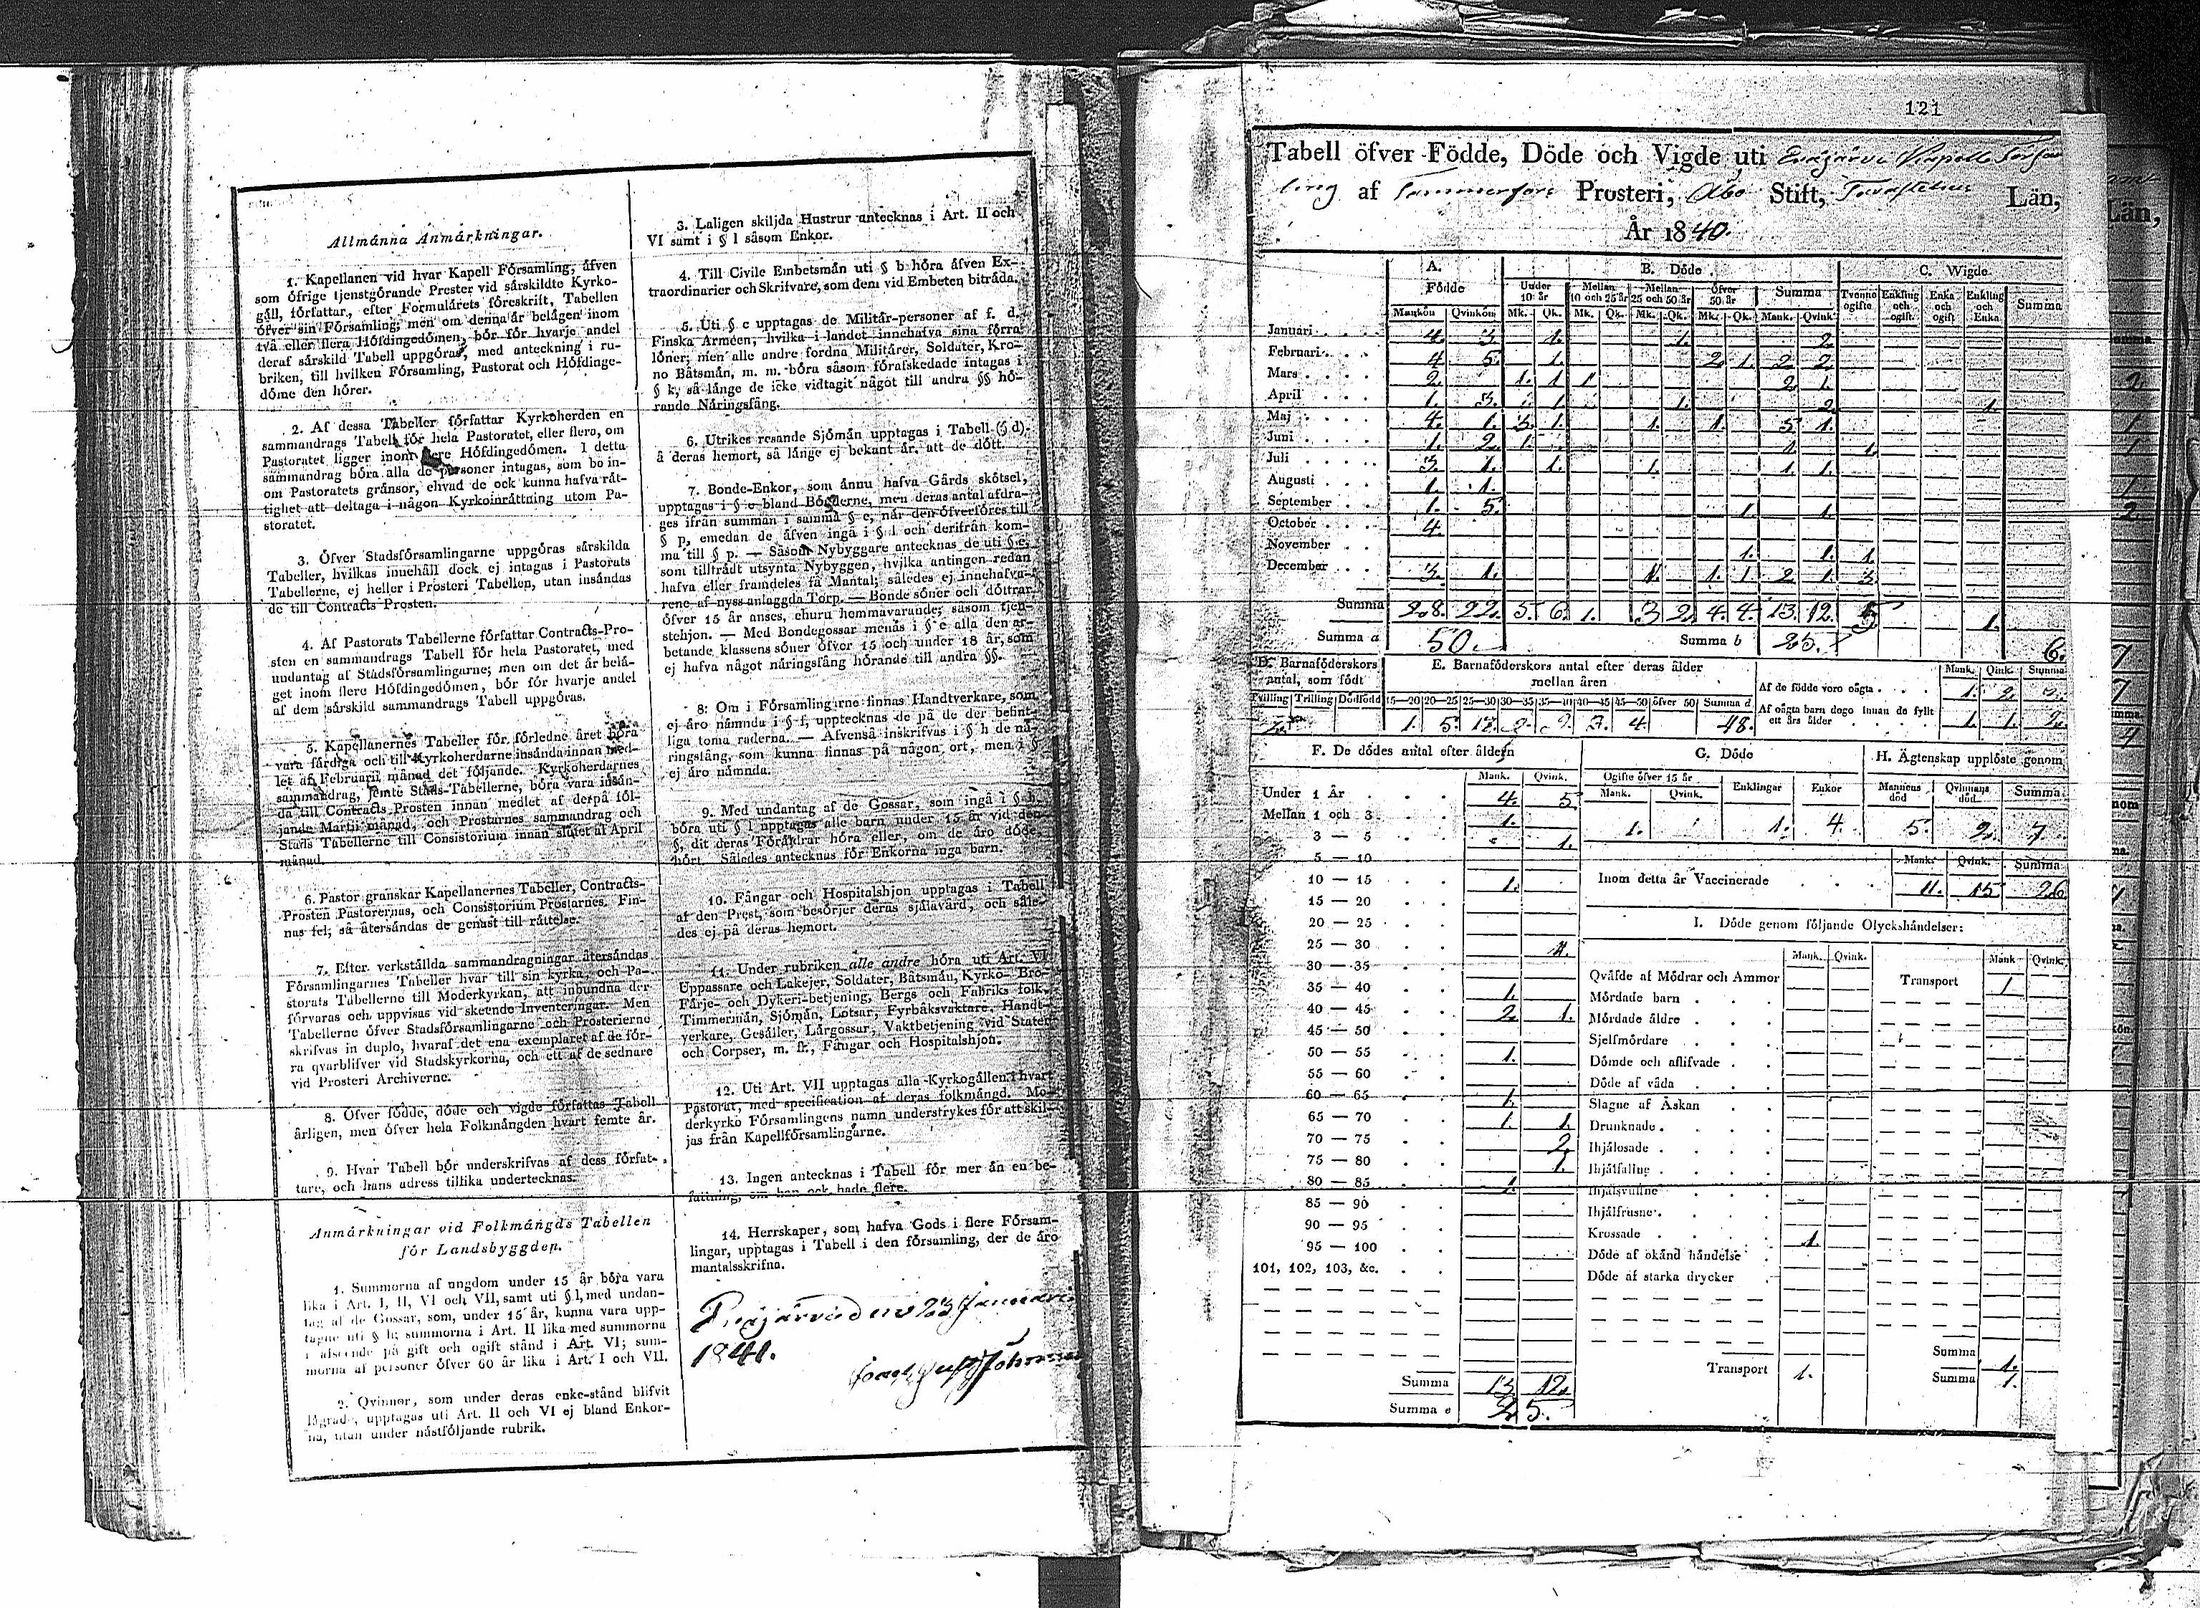 Allmänna Anmärkningar.
1. Kapellanen vid hvar Kapell Församling, äfven
som öfrige tjenstgörande Prester vid särskildte Kyrko-
gäll, författar, efter Formulärets föreskrift, Tabellen
öfver sin Församling; men om denna är belägen inom
två eller flera Höfdingedömen, bör för hvarje andel
deraf särskild Tabell uppgöras, med anteckning i ru-
briken, till hvilken Församling, Pastorat och Höfdinge-
döme den hörer.
2. Af dessa Tabeller författar Kyrkoherden en
sammandrags Tabell för hela Pastoratet, eller flera, om
Pastoratet ligger inom flere Höfdingedömen. I detta
sammandrag böra alla de personer intagas, som bo in-
om Pastoratets gränsor, ehvad de ock kunna hafva rät-
tighet att deltaga i någon Kyrkoinrättning utom Pa-
storatet.
3. Öfver Stadsförsamlingarne uppgöras särskilda
Tabeller, hvilkas innehåll dock ej intagas i Pastorats
Tabellerne, ej heller i Prosteri Tabellen, utan insändas
de till Contracts Prosten.
4. Af Pastorats Tabellerne författar Contracts-Pro-
sten en sammandrags Tabell för hela Pastoratet, med
undantag af Stadsförsamlingarne; men om det är belä-
get inom flere Höfdingedömen, bör för hvarje andel
af dem särskild sammandrags Tabell uppgöras.
5. Kapellanernes Tabeller för förledne året böra
vara färdiga och till Kyrkoherdarne insända innan med-
let af Februarii månad det följande. Kyrkoherdarnes
sammandrag, jemte Stads-Tabellerne, böra vara insän-
da till Contracts Prosten innan medlet af derpå föl-
jande Martii månad, och Prostarnes sammandrag och
Stads Tabellerne till Consistorium innan slutet af April
månad.
6. Pastor granskar Kapellanernes Tabeller, Contracts-
Prosten Pastorernas, och Consistorium Prostarnes. Fin-
nas fel, så återsändas de genast till rättelse.
7. Efter verkställda sammandragningar återsändas
Församlingarnes Tabeller hvar till sin kyrka, och Pa-
storats Tabellerne till Moderkyrkan, att inbundna der
förvaras och uppvisas vid skeende Inventeringar. Men
Tabellerne öfver Stadsförsamlingarne och Prosterierne
skrifvas in duplo, hvaraf det ena exemplaret af de för-
ra qvarblifver vid Stadskyrkorna, och ett af de sednare
vid Prosteri Archiverne.
8. Öfver födde, döde och vigde författas Tabell
årligen, men öfver hela Folkmängden hvart femte år.
9. Hvar Tabell bör underskrifvas af dess författ-
tare, och hans adress tillika undertecknas.
Anmärkningar vid Folkmängds Tabellen
för Landsbyggden.
1. Summorna af ungdom under 15 år böra vara
lika i Art. I, II, VI och VII, samt uti § l, med undan-
tag af de Gossar, som, under 15 år, kunna vara upp-
tagne uti § h; summorna i Art. II lika med summorna
i afseende på gift och ogift stånd i Art. VI; sum-
morna af personer öfver 60 år lika i Art. I och VII.
2. Qvinnor, som under deras enke-stånd blifvit
lägrade, upptagas uti Art. II och VI ej bland Enkor-
na, utan under nästföljande rubrik.
3. Laligen skiljda Hustrur antecknas i Art. II och
VI samt i § l såsom Enkor.
4. Till Civile Embetsmän uti § b höra äfven Ex-
traordinarier och Skrifvare, som dem vid Embeten biträda.
5. Uti § c upptagas de Militär-personer af f. d.
Finska Arméen, hvilka i landet innehafva sina förra
löner; men alle andre fordna Militärer, Soldater, Kro-
no Båtsmän, m. m. böra såsom förafskedade intagas i
§ k, så länge de icke vidtagit något till andra §§ hö-
rande Näringsfång.
6. Utrikes resande Sjömän upptagas i Tabell (§ d)
å deras hemort, så länge ej bekant är, att de dött.
7. Bonde-Enkor, som ännu hafva Gårds skötsel,
upptagas i § e bland Bönderne, men deras antal afdra-
ges ifrån summan i samma § e, når den öfverföres till
§ p, emedan de äfven ingå i § l och derifrån kom-
ma till § p. — Såsom Nybyggare antecknas de uti § e,
som tillträdt utsynta Nybyggen, hvilka antingen redan
hafva eller framdeles få Mantal; således ej innehafva-
rene af nyss anlaggda Torp. — Bonde söner och döttrar
öfver 15 år anses, ehuru hemmavarande, såsom tjen-
stehjon. — Med Bondegossar menas i § e alla den ar-
betande klassens söner öfver 15 och under 18 år, som
ej hafva något näringsfång hörande till andra §§.
8. Om i Församlingarne finnas Handtverkare, som
ej äro nämnda i § f, upptecknas de på de der befint-
liga toma raderna. — Äfvenså inskrifvas i § h de nä-
ringsfång, som kunna finnas på någon ort, men i §
ej äro nämnda.
9. Med undantag af de Gossar, som ingå i § h,
böra uti § l upptagas alle barn under 15 år vid den
§, dit deras Föräldrar höra eller, om de äro döde,
hört. Således antecknas för Enkorna inga barn.
10. Fångar och Hospitalshjon upptagas i Tabell
af den Prest, som besörjer deras själavård, och såle-
des ej på deras hemort.
11. Under rubriken alle andre höra uti Art. VI
Uppassare och Lakejer, Soldater, Båtsmän, Kyrko- Bro-
Färje- och Dykeri-betjening, Bergs och Fabriks folk,
Timmermän, Sjömän, Lotsar, Fyrbåksvaktare, Handt-
verkare, Gesäller, Lärgossar, Vaktbetjening vid Stater
och Corpser, m. fl., Fångar och Hospitalshjon.
12. Uti Art. VII upptagas alla Kyrkogällen i hvart
Pastorat, med specification af deras folkmängd. Mo-
derkyrko Församlingens namn understrykes för att skil-
jas från Kapellförsamlingarne.
13. Ingen antecknas i Tabell för mer än en be-
fattning, om han ock hade flere.
14. Herrskaper, som hafva Gods i flere Försam-
lingar, upptagas i Tabell i den församling, der de äro
mantalsskrifna.
23 Januari
1841.
121
Tabell öfver Födde, Döde och Vigde uti Kapells Försam
ling af Tammerfors Prosteri, Åbo Stift, Tavastehus Län,
År 1840.
A. Födde B. Döde. C. Wigde
Under 10 år Mellan 10 och 25 år Mellan 25 och 50 år Öfver 50 år Summa Tvenne ogifte Enkling och ogift. Enka och ogift Enkling och Enka Summa
Mankön Qvinkön Mk. Qk. Mk. Qk. Mk. Qk. Mk. Qk. Mank. Qvink
Januari 4. 3. 1. 1. 2.
Februari 4 5. 1. 2. 1. 2. 2.
Mars 2. 1. 1 1 2 1.
April 1. 3. 1. 1. 2. 1.
Maj 4. 1. 3. 1. 1. 1. 5. 1.
Juni 1. 2. 1. 1. 1.
Juli 3. 1. 1. 1. 1. 1.
Augusti 1. 1.
September 1. 5. 1. 1.
October 4.
November 1. 1. 1.
December 3. 1. 1. 1. 1. 2. 1. 3.
Summa 28. 22. 5. 6. 1. 3 2. 4. 4. 13. 12. 5 1.
Summa a 50. Summa b 25. 6.
D. Barnaföderskors antal, som födt
Tvilling Trilling Dödfödd
2.
E. Barnaföderskors antal efter deras ålder
mellan åren
15—20 20—25 25—30 30—35 35—40 40—45 45—50 öfver 50 Summa d
1. 5. 4. 48.
Mank. Qink. Summa
Af de födde voro oägta 1. 2. 3.
Af oägta barn dogo innan de fyllt
ett års ålder 1. 1. 2.
F. De dödes antal efter åldern
Mank. Qvink.
Under 1 År 4. 5
Mellan 1 och 3 1.
3 — 5 1.
5 — 10
10 — 15 1.
15 — 20
20 — 25
25 — 30
30 — 35
35 — 40 1.
40 — 45 2 1.
45 — 50
50 — 55 1.
55 — 60
60 — 65 1.
65 — 70 1 1.
70 — 75 2.
75 — 80 1.
80 — 85 1.
85 — 90
90 — 95
95 — 100
101, 102, 103, &c.
Summa 13 12.
Summa e 25.
G. Döde
Ogifte öfver 15 år Enklingar Enkor
Mank. Qvink.
1. 1. 4.
H. Ägtenskap upplöste genom
Mannens död Qvinnans död. Summa
5. 2. 7.
Mank. Qvink. Summa
Inom detta år Vaccinerade 11. 15 26
I. Döde genom följande Olyckshändelser:
Mank. Qvink. Mank Qvink.
Qväfde af Mödrar och Ammor Transport 1
Mördade barn
Mördade äldre
Sjelfmördare
Dömde och aflifvade
Döde af våda
Slagne af Åskan
Drunknade
Ihjälosade
Ihjälfallne
Ihjälsvultne
Ihjälfrusne
Krossade 1.
Döde af okänd händelse
Döde af starka drycker
Summa 1.
Transport 1. Summa 1.
Län,